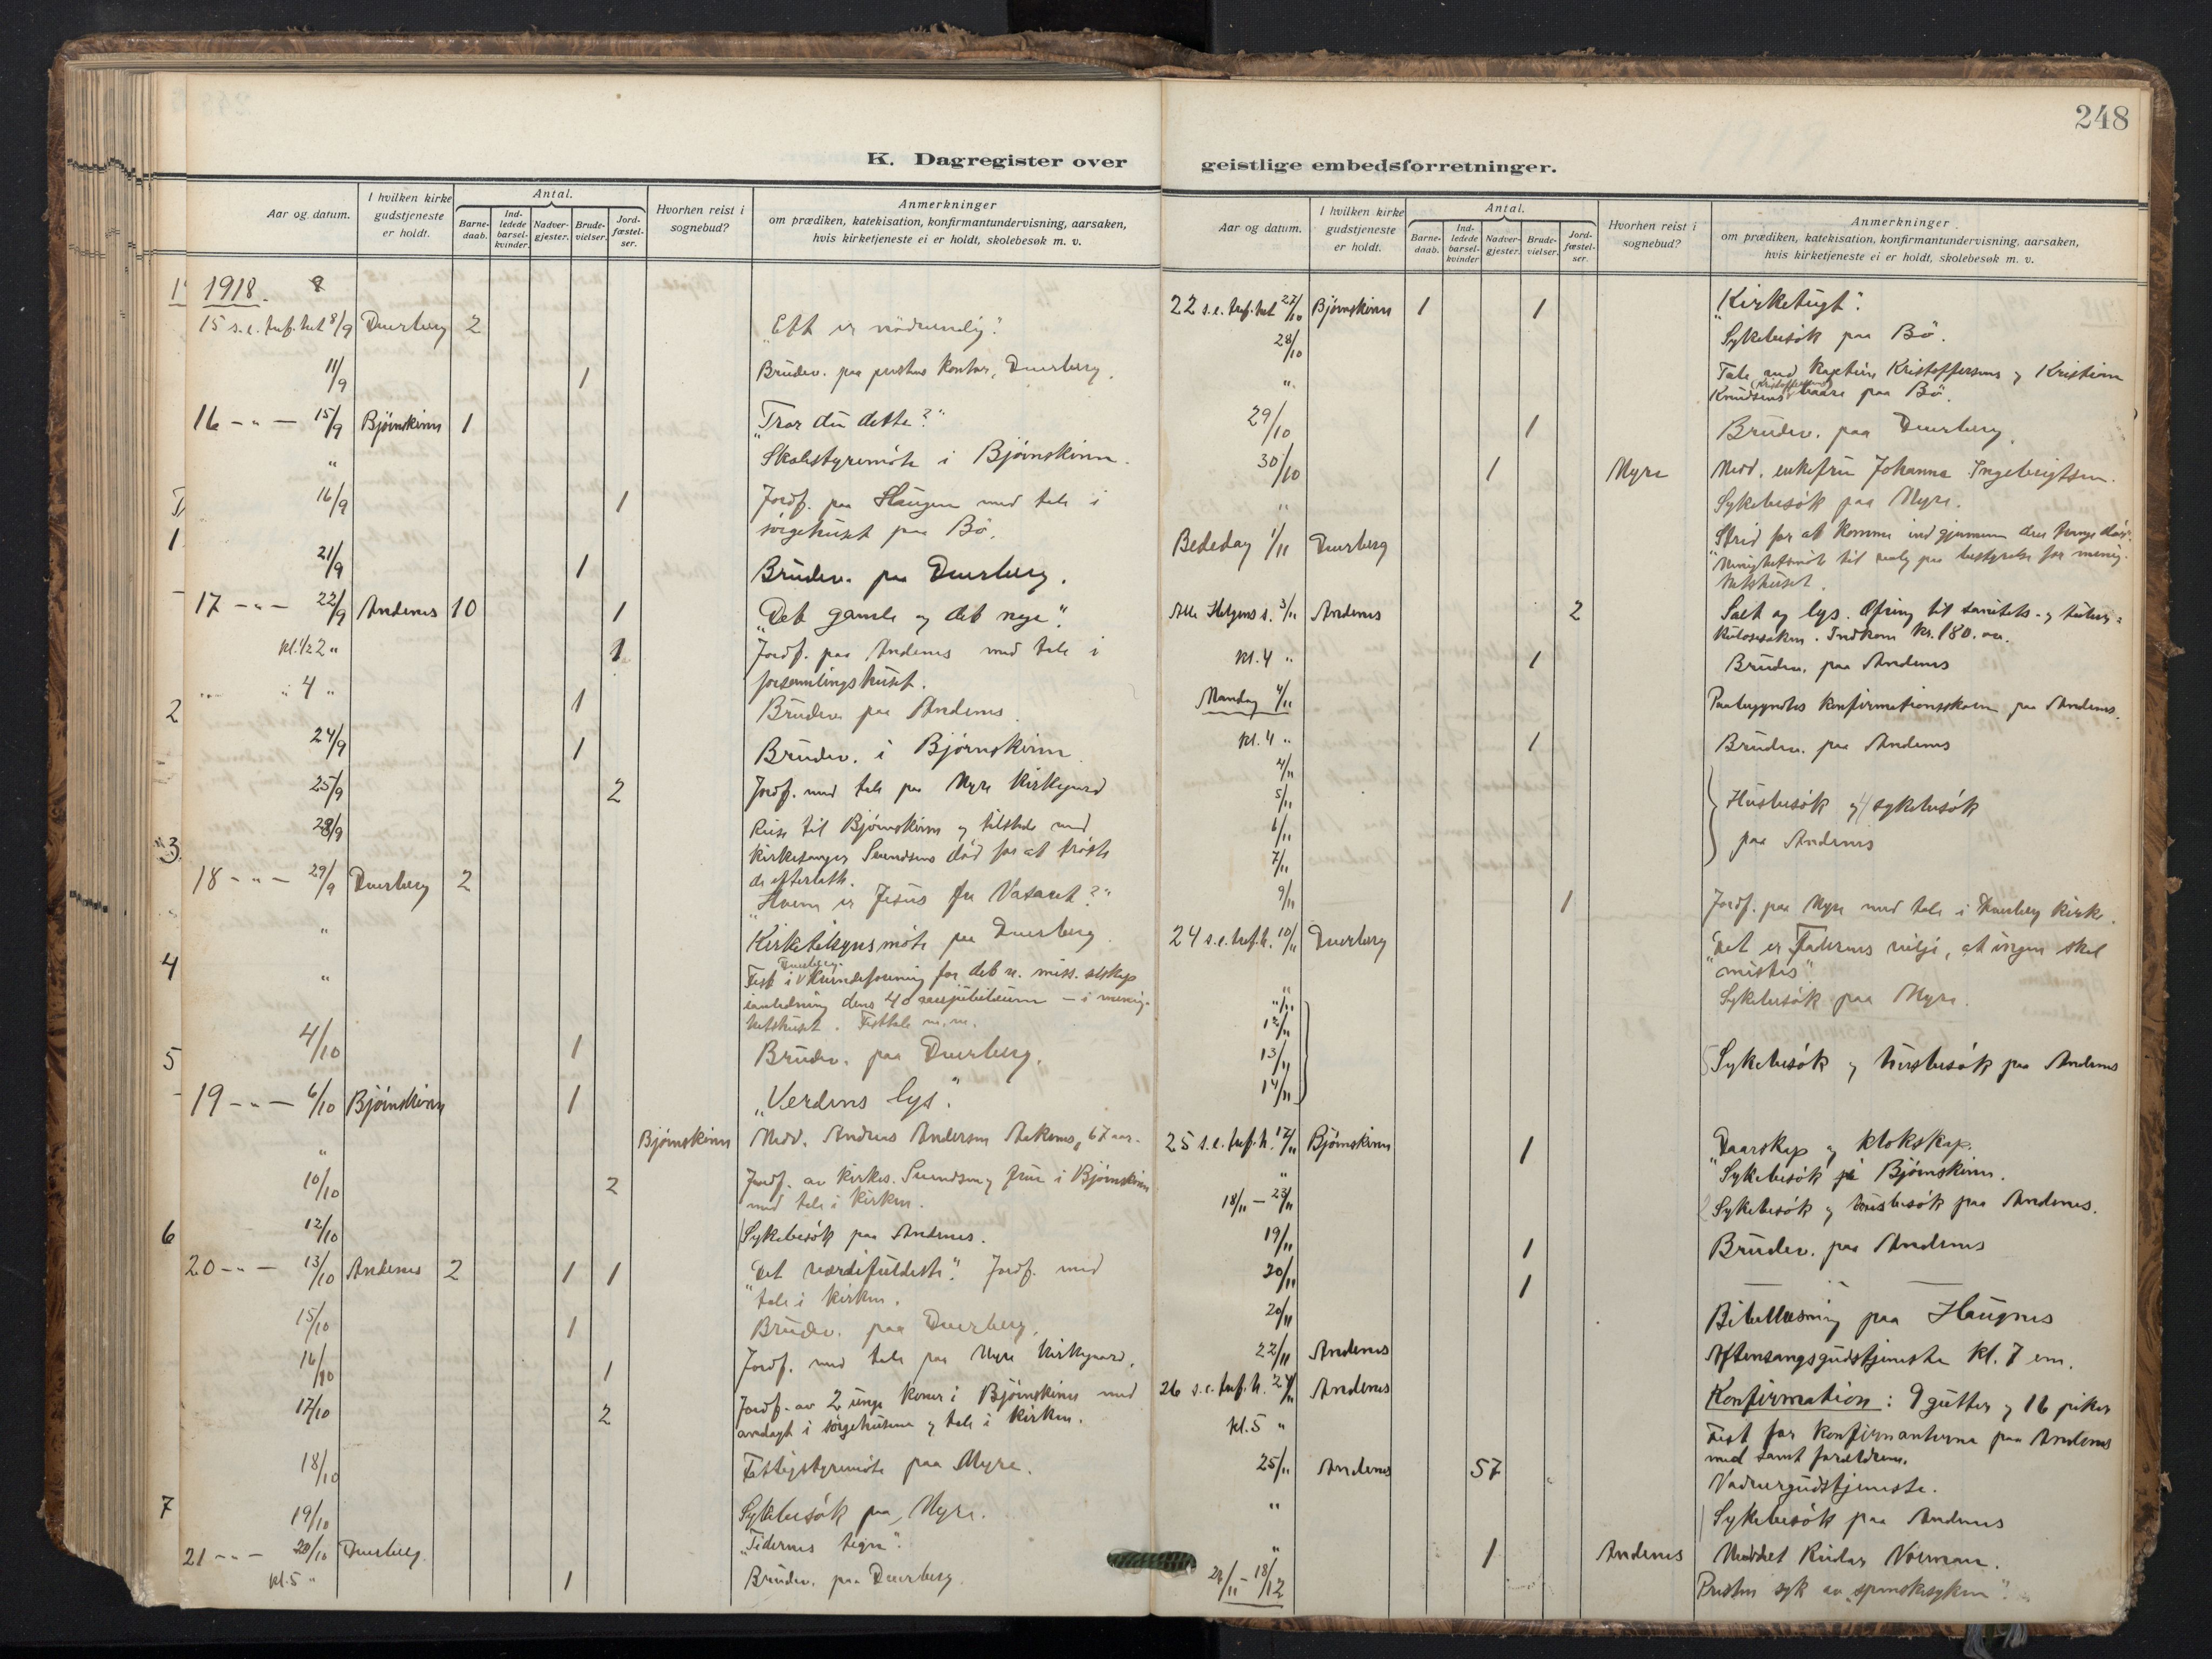 248
K. Dagregister over geistlige embedsforretninger.
Aar og datum.
I hvilken kirke gudstjeneste er holdt.
Antal.
Barne-daab.
Ind-ledede barsel-kvinder.
Nadver-gjester.
Brude-vielser.
Jord-fæstel-ser.
Hvorhen reist i sognebud?
Anmerkninger
om prædiken, katekisation, konfirmantundervisning, aarsaken,
hvis kirketjeneste ei er holdt, skolebesøk m. v.
1918.
15 s.e. tref. 8/9 Dverberg 2 "Ett er nödvendig".
11/9 1 Brudev. paa prestens kontor, Dverberg.
16 - " - 15/9 Bjørnskinn 1 "Tror du dette?"
" Skolestyremöte i Bjørnskinn.
16/9 1 Jordf. paa Haugen med tale i
sörgehuset paa Bö.
21/9 1 Brudev. paa Dverberg.
17 - " - 22/9 Andenes 10 1 "Det gamle og det nye".
kl. 1/2 2 " 1 Jordf. paa Andenes med tale i
forsamlingshuset.
" 4 " 1 Brudev. paa Andenes
24/9 1 Brudev. i Bjørnskinn
25/9 2 Jordf. med tale paa Myre kirkegaard
28/9 Reise til Bjørnskinn og tilstede ved
kirkesanger död for at tröste
de efterlatte.
18 - " - 29/9 Dverberg 2 "Hvem er Jesus fra Nasaret?"
" Kirketilsynsmöte paa Dverberg.
" Fest i Dverberg kvindeforening for det n. miss. selskap
i anledning dens 40 aarsjubilæum - i menig-
hetshuset. Festtale m.m.
4/10 1 Brudev. paa Dverberg.
19 - " - 6/10 Bjørnskinn 1 "Verdens lys".
" Bjørnskinn Medd. Andreas Andersen 67 aar.
10/10 2 Jordf. av kirkes. frue i Bjørnskinn
med tale i kirken.
12/10 Sykebesök paa Andenes.
20 - " - 13/10 Andenes 2 1 1 "Det værdifuldeste". Jordf. med
tale i kirken.
15/10 1 Brudev. paa Dverberg.
16/10 1 Jordf. med tale paa Myre kirkegaard.
17/10 2 Jordf. av 2 unge koner i Bjørnskinn med
andagt i sörgehusene og tale i kirken.
18/10 Fattigstyremöte paa Myre.
19/10 Sykebesök paa Myre.
21 - " - 20/10 Dverberg. "Tidernes tegn".
kl. 5 " 1 Brudev. paa Dverberg.
Aar og datum.
I hvilken kirke gudstjeneste er holdt.
Antal.
Barne-daab.
Ind-ledede barsel-kvinder
Nadver-gjester.
Brude-vielser.
Jord-fæstel-ser.
Hvorhen reist i sognebud?
Anmerkninger
om prædiken, katekisation, konfirmantundervisning, aarsaken,
hvis kirketjeneste ei er holdt, skolebesøk m. v.
22 s.e. tref. 27/10 Bjørnskinn 1 1 "Kirketugt".
28/10 Sykebesök paa Bö.
" Tale ved kaptein Kristoffersens og Kristian
Knudsens (Kristoffersens) baare paa Bö.
29/10 1 Brudev. paa Dverberg.
30/10 1 Myre Medd. enkefru Johanna Ingebrigtsen.
" Sykebesök paa Myre.
Bededag 1/11 Dverberg Strid for at komme ind gjennem den trange dör.
Menighetsmöte til valg paa bestyrelse for menig-
hetshuset.
Alle Helgens s. 3/11 Andenes 2 Salt og lys. Ofring til sanitets- og tuber-
kulosesaken. Indkom kr. 180.00.
kl. 4 " 1 Brudev. paa Andenes
Mandag 4/11 Paabegyndtes konfirmationsskolen paa Andenes.
kl. 4 " 1 Brudev. paa Andenes
4/11
5/11 Husbesök og 4 sykebesök
6/11 paa Andenes
7/11
9/11 1 Jordf. paa Myre med tale i Dverberg kirke.
24 s.e. tref. 10/11 Dverberg "Det er Faderens vilje, at ingen skal
mistes"
" Sykebesök paa Myre.
11/11
12/11
13/11 5 Sykebesök og husbesök paa Andenes
14/11
25 s.e. tref. 17/11 Bjørnskinn 1 "Daarskap og klokskap.
" Sykebesök på Bjørnskinn.
18/11 - 23/11 2 Sykebesök og husbesök paa Andenes.
19/11 1 Brudev. paa Andenes
20/11 1 — " —
20/11 Bibellæsning paa Haugnes
22/11 Andenes Aftensangsgudstjeneste kl. 7 em.
26 s.e. tref. 24/11 Andenes Konfirmation: 9 gutter og 16 piker
kl. 5 " Fest for konfirmanterne paa Andenes
med samt forældrene.
25/11 Andenes 57 Nadvergudstjeneste.
" 1 Sykebesök paa Andenes
" 1 Andenes Meddelt Norman.
/11 - 18/12 Presten syk av "spanskesyken".